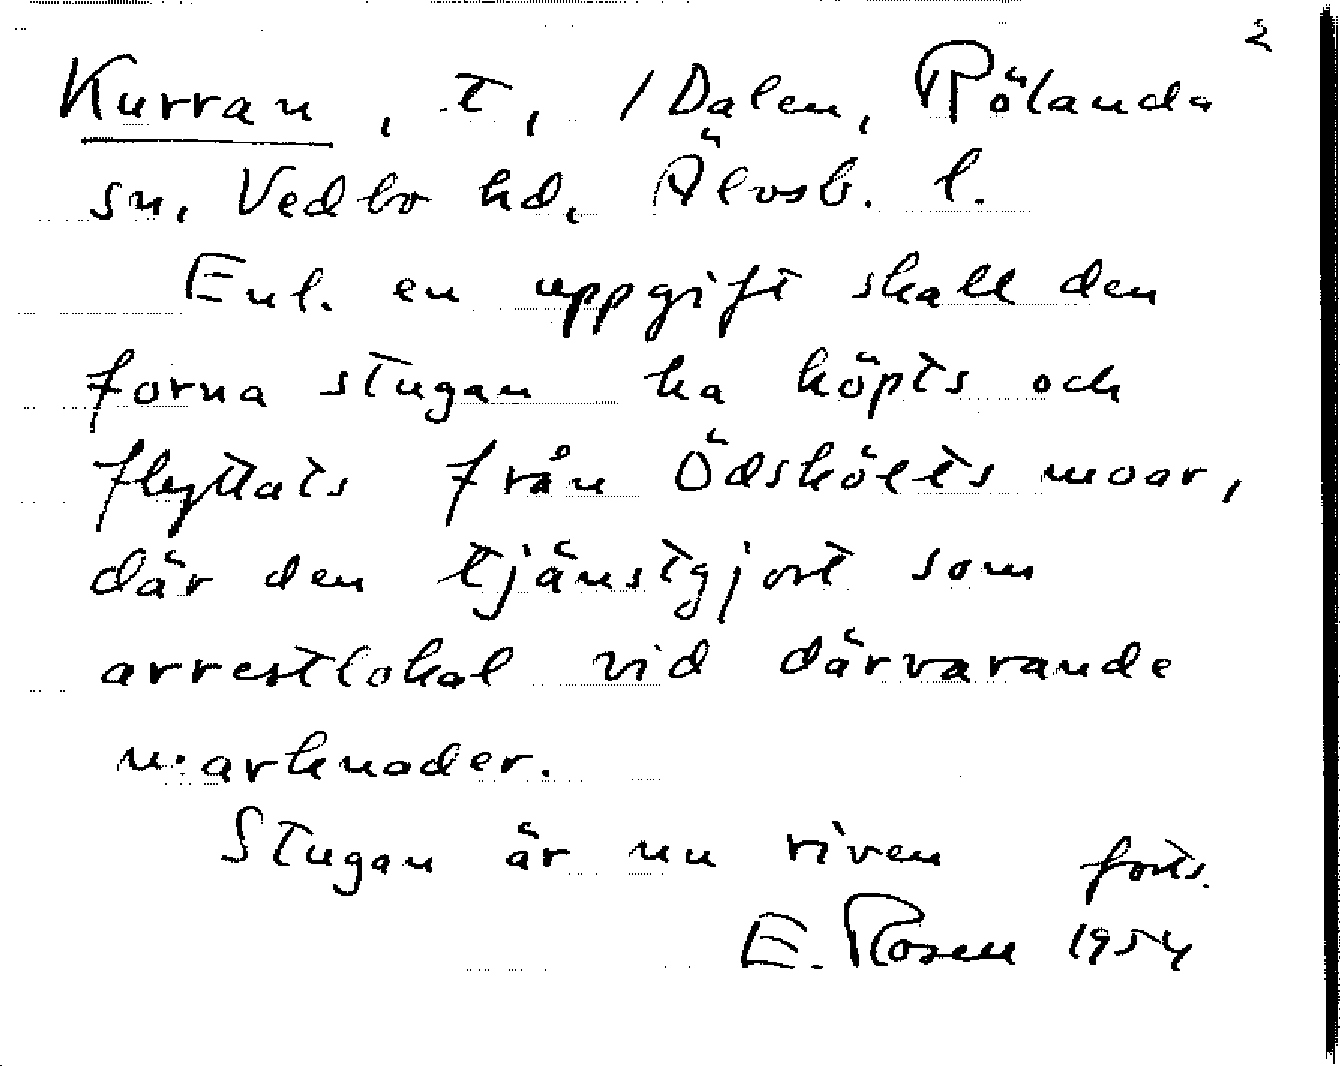 2
Kurran, t, /Dalen, Rölanda
sn, Vedbo hd, Älvsb. l.
Enl. en uppgift skall den
forna stugan ha köpts och
flyttats från Ödskölts moar,
där den tjänstgjort som
arrestlokal vid därvarande
marknader.
Stugan är nu riven forts.
E. Rosell 1954